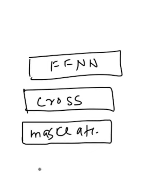 FFNN
cross
mask att.